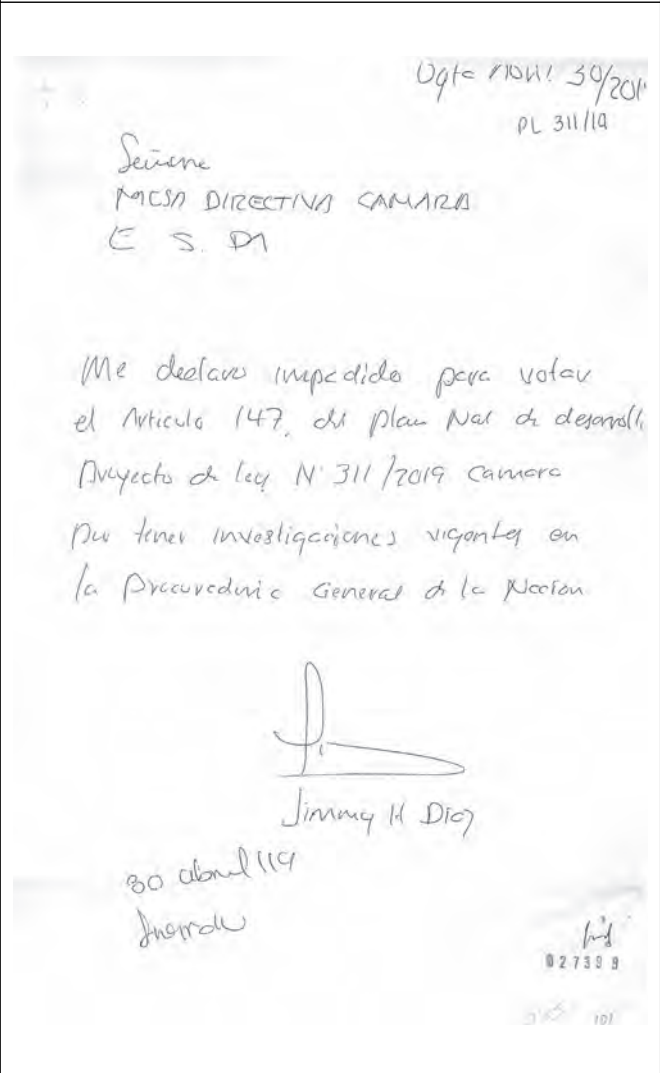 Bgta Abril 30/201
PL 311/19
Señores
MESA DIRECTIVA CAMARA
E S. D
Me declaro impedido para votar
el Articulo 147, del plan Nal de desarroll
Proyecto de ley N° 311/2019 Camara
por tener investigaciones vigentes en
la Procuraduria General de la Nacion
Jimmy H Diaz
30 abril /19
027399
101